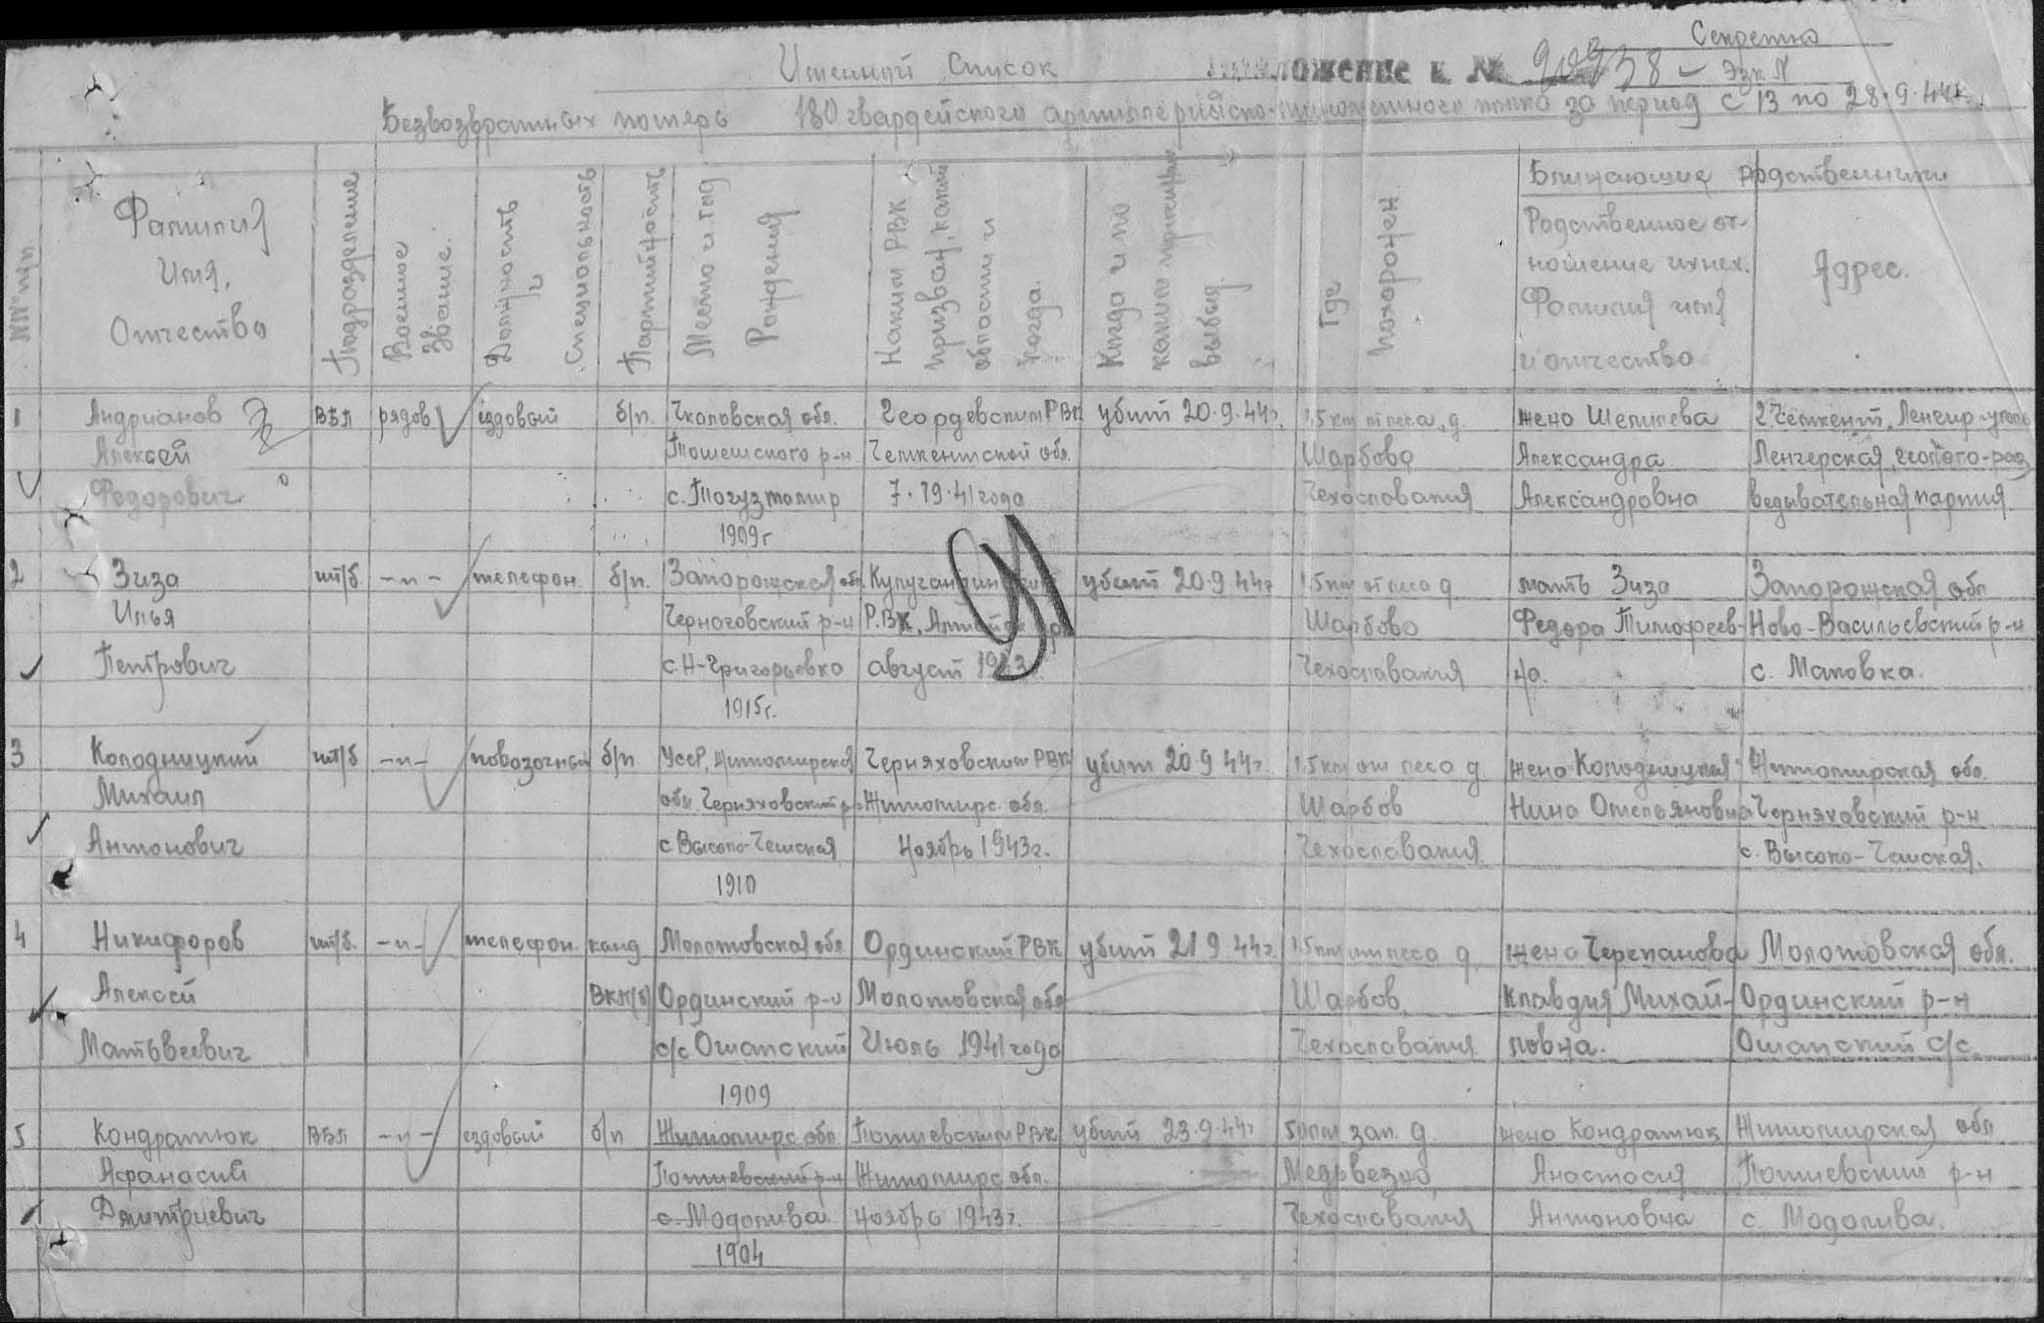 Секретно
Именной Список
Приложение к № 90938
Экз. №
Безвозвратных потерь 180 гвардейского артиллерийско-миномётного полка за период с 13 по 28.9.44г.
№№ п/п
Фамилия Имя, Отчество
Подразделение
Военное звание.
Должность и специальность
Партийность
Место и год рождения
Каким РВК призван, какой области и когда.
Когда и по какой причине выбыл
Где похоронен
Ближающие родственники
Родственное отношение их нех. Фамилия имя и отчество
Адрес.
1 Андрианов ВБП рядов ездовый б/п. Чкаловская обл. Георгевским РВК убит 20.9.44г. 1,5 км от леса, д. жена Шепилева г. Чемкент, Ленгир-уголь
Алексей р-н Чемкентской обл. Шарбово Александра Ленгерская, геолого-раз
Федорович с. 7.19.41 года Чехословакия Александровна ведывательная партия
1909г
2 Зиза шт/б -"- телефон. б/п. Запорожская обл. убит 20.9.44г 1,5 км от леса д мать Зиза Запорожская обл
Илья Черноговский р-н Р.В.К. Шарбово Федора Тимофеев- Ново-Васильевский р-н
Петрович с. Н-Григорьевка август 1943 Чехословакия на. с. Маковка.
1915г.
3 Колодницкий шт/б -"- повозочный б/п УССР, Житомирская Черняховским РВК убит 20.9 44г. 1,5 км от леса д жена Колодницкая Житомирская обл.
Михаил обл. Черняховский р-н Житомирс. обл. Шарбов Нина Отельяновна Черняховский р-н
Антонович с Высоко-Чешская ноябрь 1943г. Чехословакия с. Высоко-Чашская.
1910
4 Никифоров шт/б. -"- телефон. канд Молотовская обл Ординский РВК убит 21 9.44г. 1,5 км от леса д. жена Черепанова Молотовская обл.
Алексей ВКП(б) Ординский р-н Молотовская обл Шарбов, Клавдия Михай- Ординский р-н
Матьвеевич с/с Ошапский Июль 1941 года Чехословакия ловна. Ошапский с/с
1909
5 Кондратюк ВБП -"- ездовый б/п Житомирс. обл. Потиевским РВК убит 23.9.44г зап. д. жена Кондратюк Житомирская обл
Афанасий Потиевский р-н Житомирс обл. Медьвезно, Анастасия Потиевский р-н
Дмитриевич с. Модолива ноябрь 1943г. Чехословакия Антоновна с. Модолива.
1904